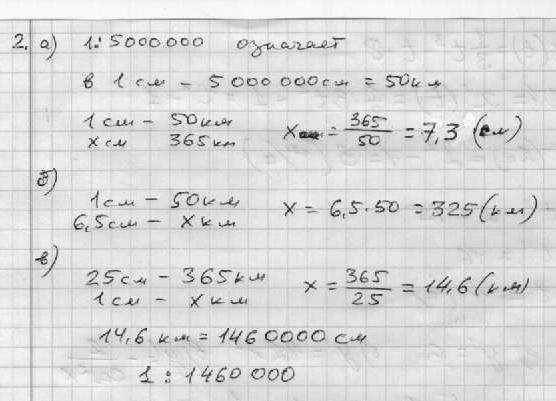 2. а) 1:5000000 означает
в 1 см – 5 000 000 см = 50 км
1 см – 50 км
х см 365 км х = 365/50 = 7,3 (см)
б)
1 см – 50 км
6,5 см – х км х = 6,5·50 = 325 (км)
в)
25 см – 365 км
1 см – х км х = 365/25 = 14,6 (км)
14,6 км = 1460000 см
1 : 1460 000